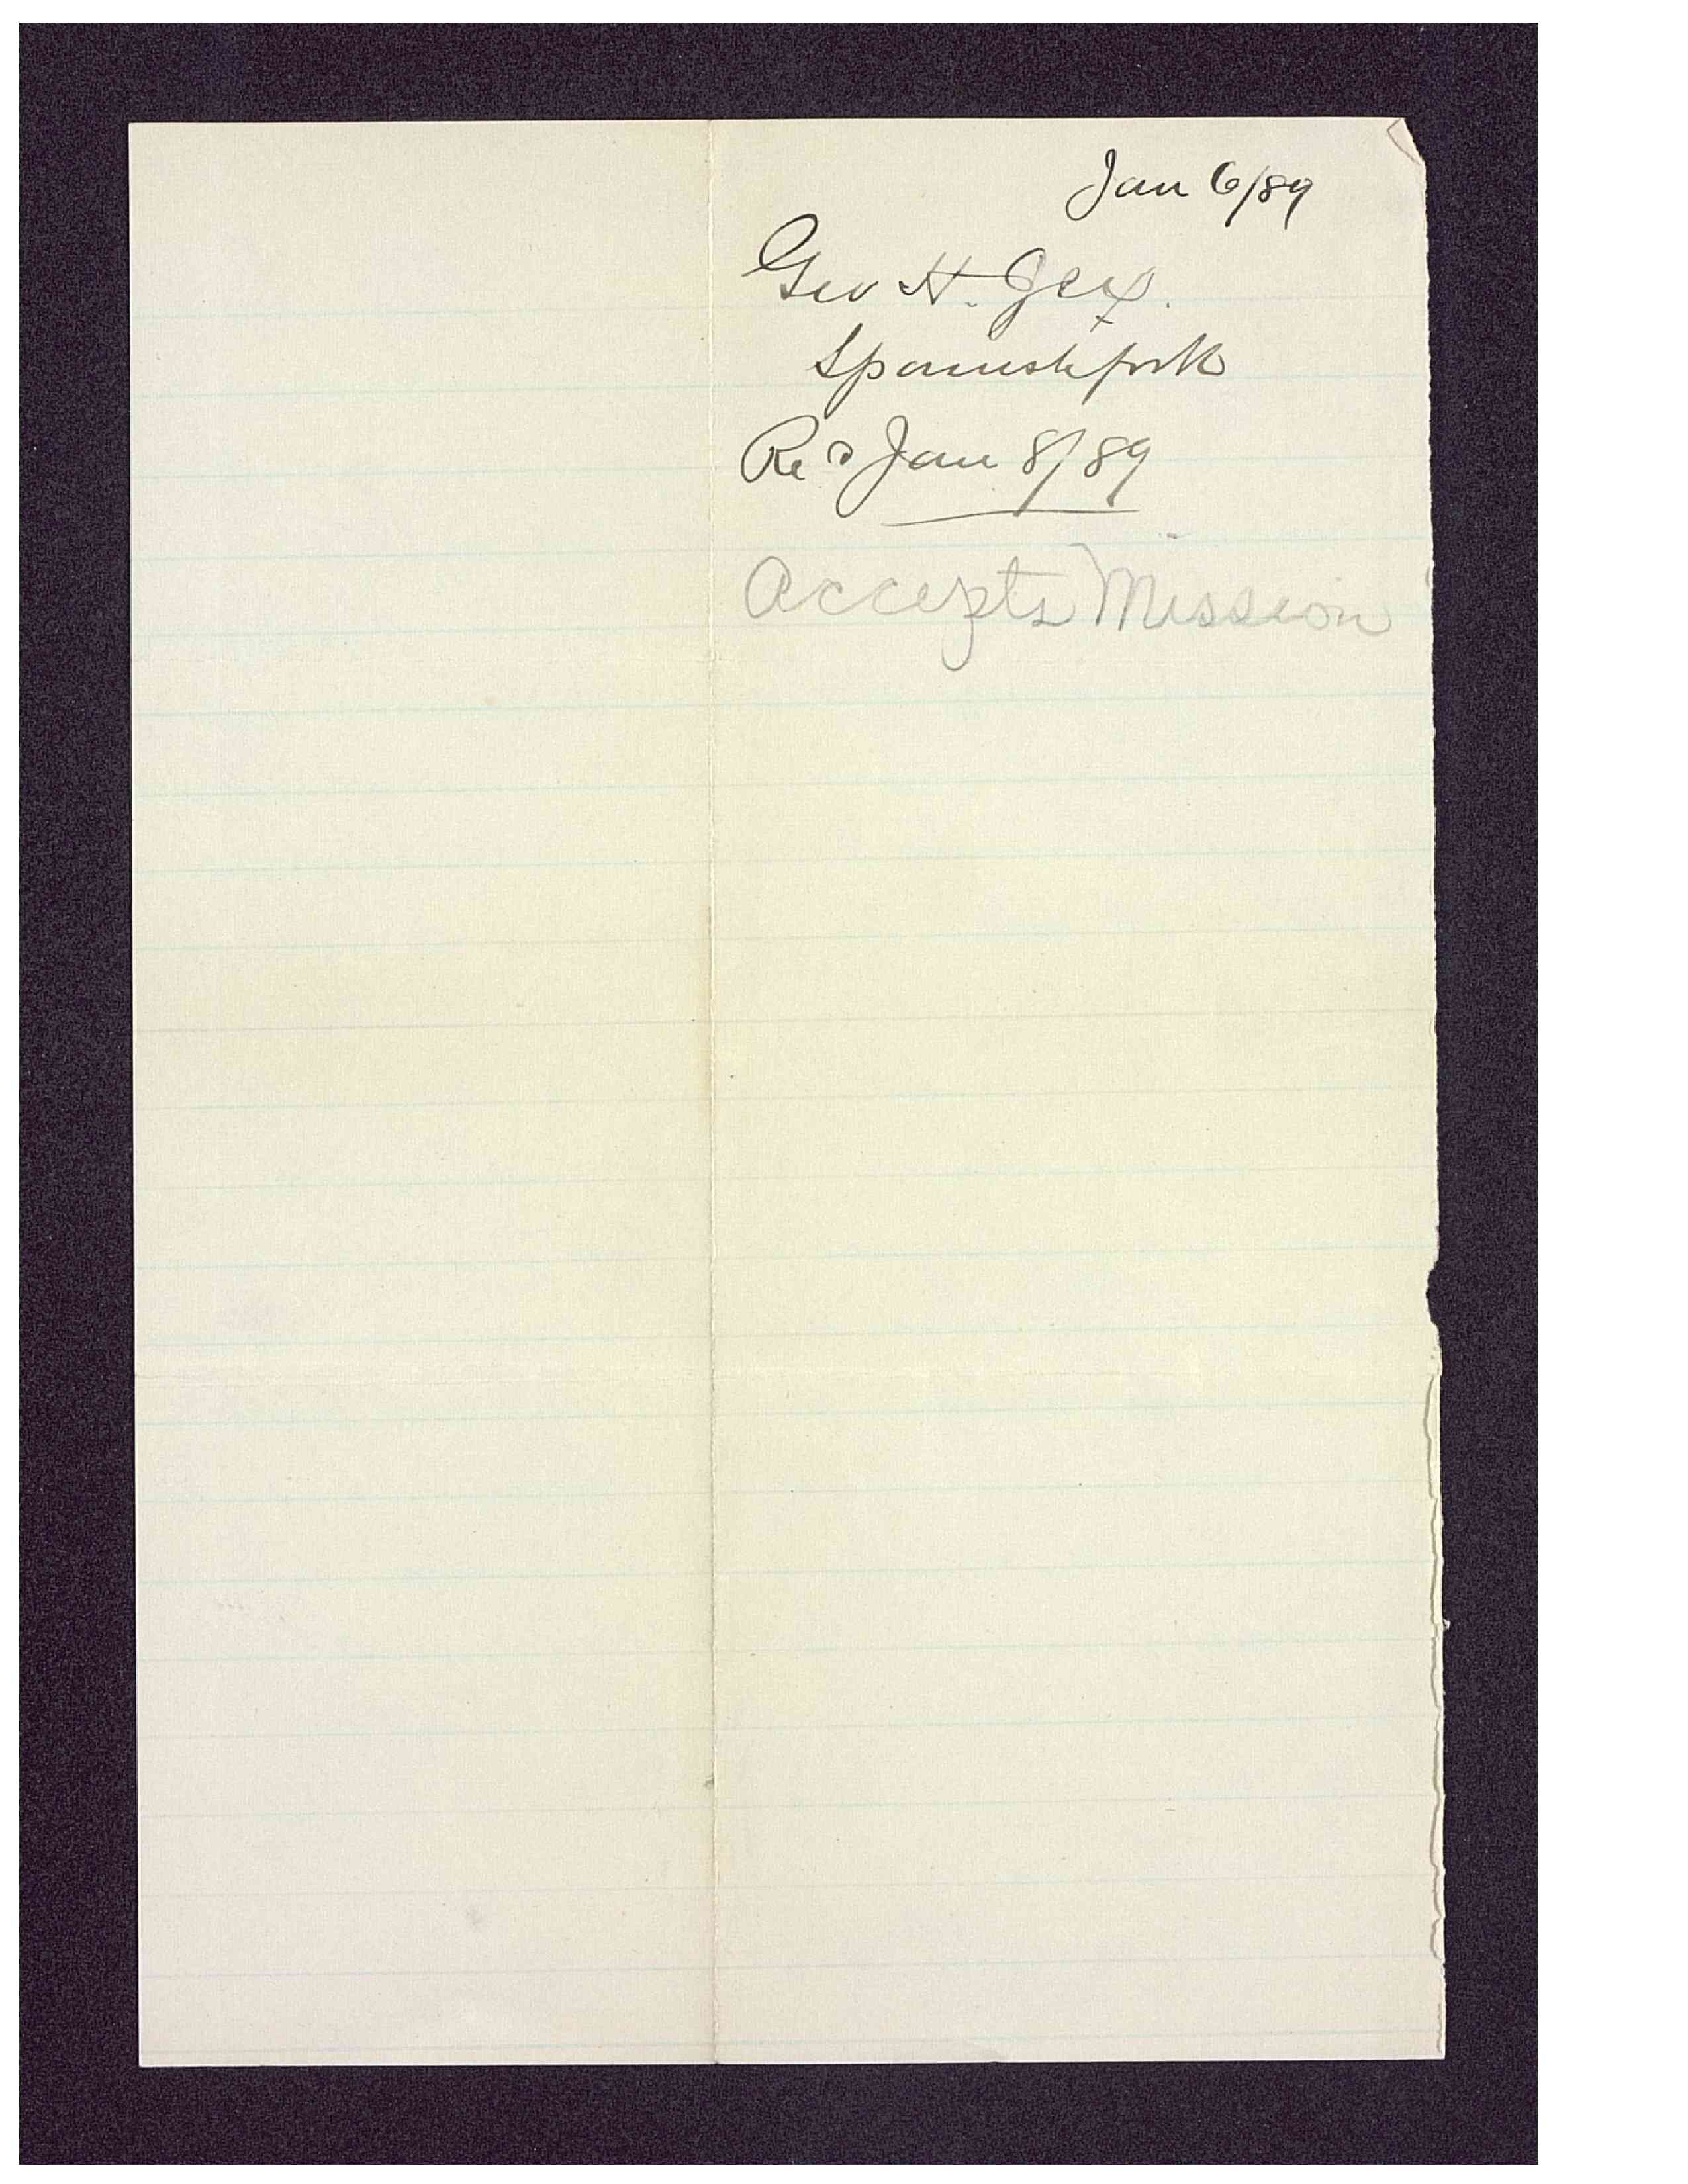 Jan 6/89
Geo H. Jex.
Spanishfork
Re'd Jan 8/89
Accepts Mission